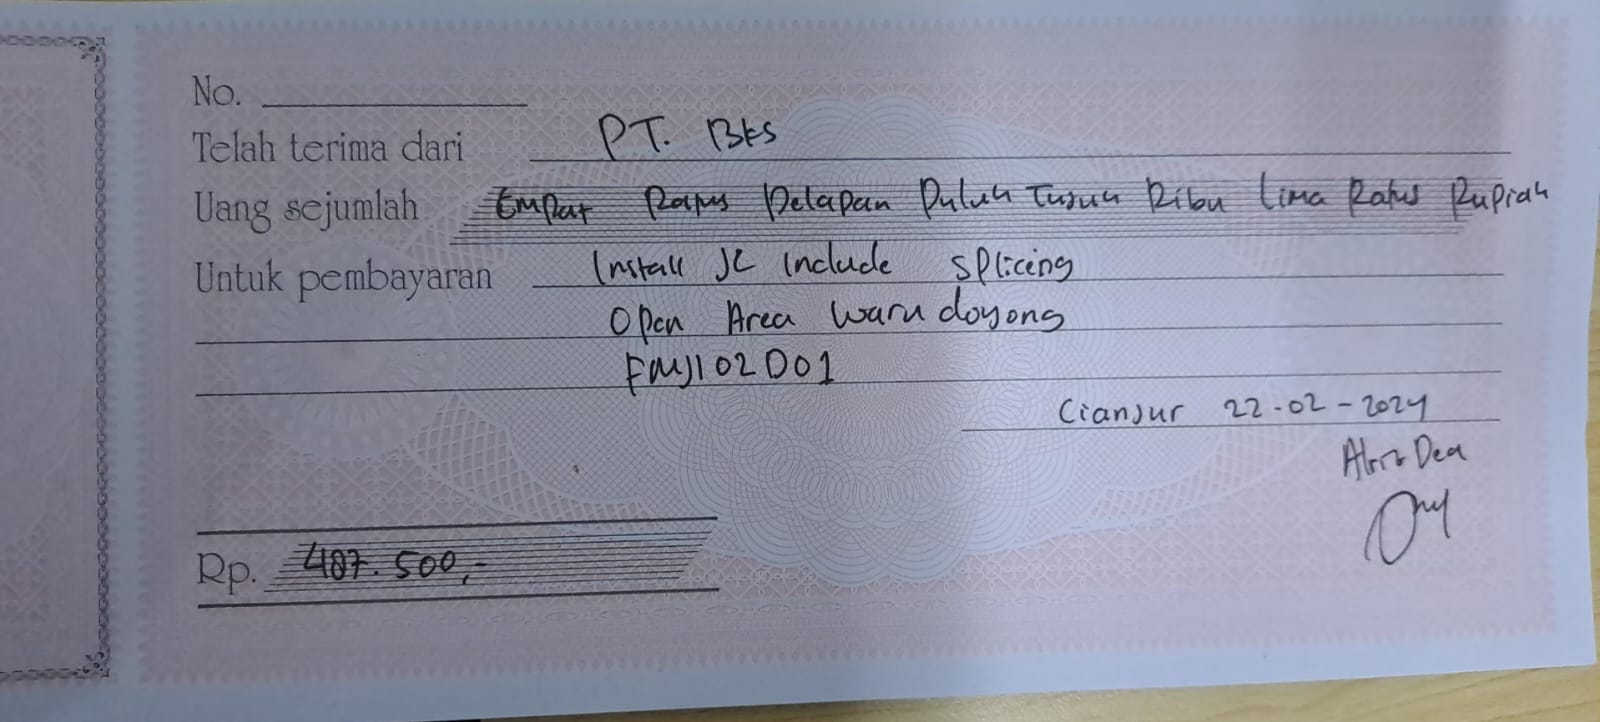 No.
Telah terima dari PT. BKS
Uang sejumlah Empat Ratus Delapan Puluh Tujuh Ribu Lima Ratus Rupiah
Untuk pembayaran Install JC Include Splicing
Open Area Warudoyong
Cianjur 22-02-2024
Rp. 487.500,-